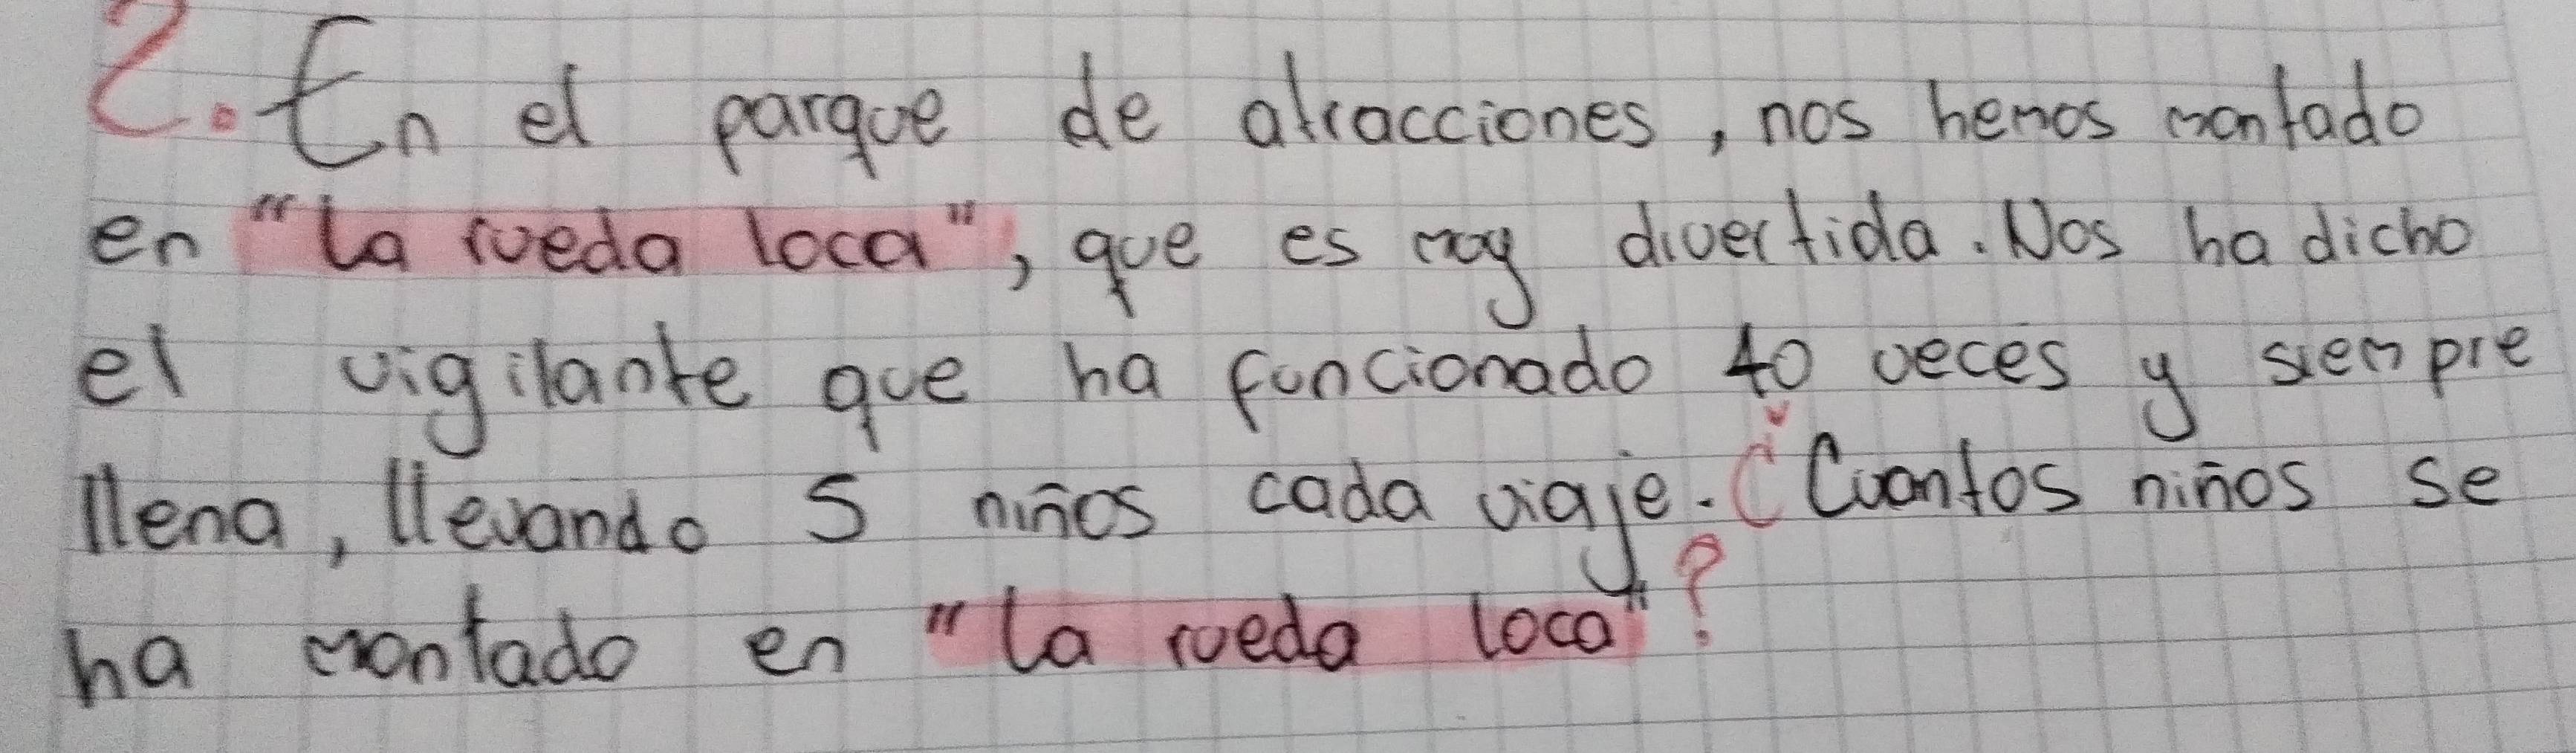 2. En el parque de atracciones, nos hemos montado
en "La rueda loca", que es muy divertida. Nos ha dicho
el vigilante que ha funcionado 40 veces y siempre
llena, llevando 5 niños cada viaje. ¿Cuantos niños se
ha montado en "La rueda loca"?